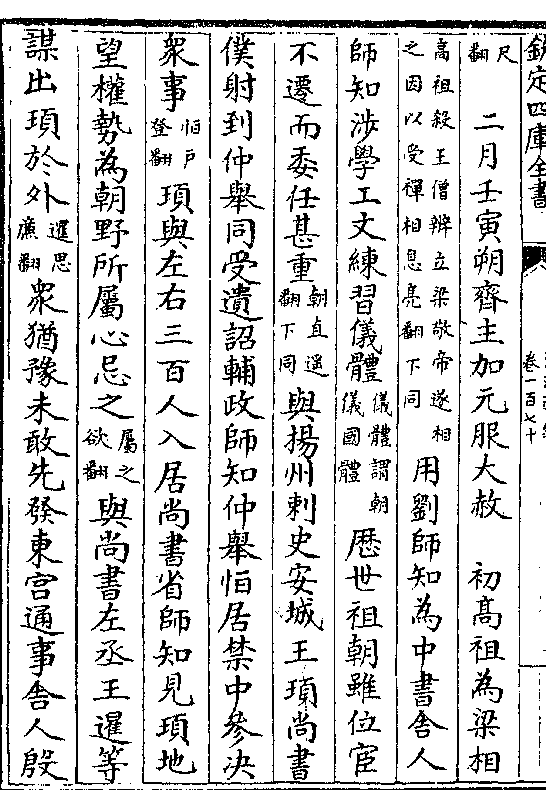 欽定四庫全書
卷一百七十
尺翻 二月壬寅朔齊主加元服大赦 初髙祖為梁相
高祖殺王僧辨立梁敬帝遂相之因以受禪相息亮翻下同用劉師知為中書舍人
師知涉學工文練習儀體儀體謂朝儀國體歴世祖朝雖位宦
不遷而委任甚重朝直遥翻下同與揚州刺史安城王頊尚書
僕射到仲舉同受遺詔輔政師知仲舉恒居禁中參決
衆事恒戸登翻頊與左右三百人入居尚書省師知見頊地
望權勢為朝野所屬心忌之屬之欲翻與尚書左丞王暹等
謀出頊於外暹思廉翻衆猶豫未敢先發東宫通事舍人殷